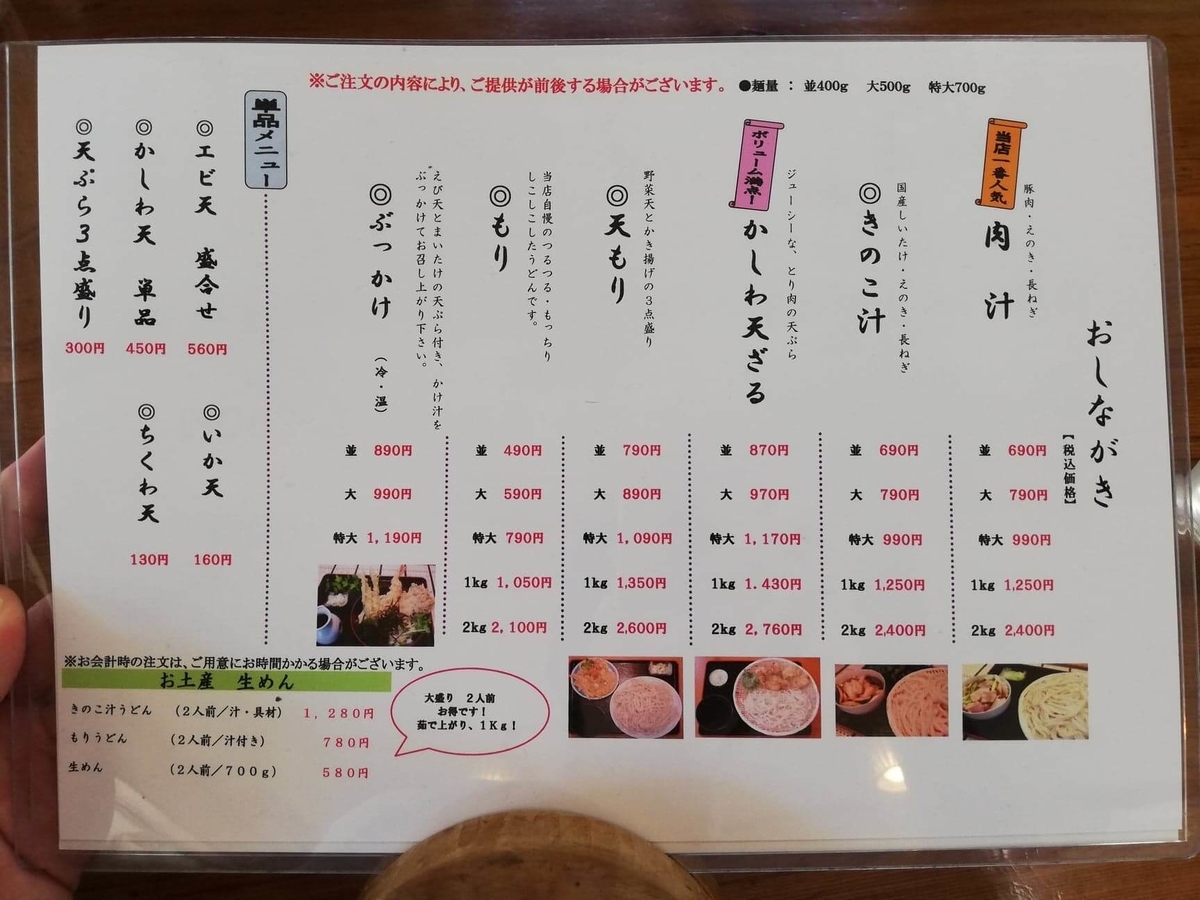 ※ご注文の内容により、ご提供が前後する場合がございます。
●麺量 : 並400g 大500g 特大700g
おしながき
【税込価格】
当店一番人気
肉汁
豚肉・えのき・長ねぎ
並 690円
大 790円
特大 990円
1kg 1,250円
2kg 2,400円
◎きのこ汁
国産しいたけ・えのき・長ねぎ
並 690円
大 790円
特大 990円
1kg 1,250円
2kg 2,400円
ボリューム満点!
かしわ天ざる
ジューシーな、とり肉の天ぷら
並 870円
大 970円
特大 1,170円
1kg 1.430円
2kg 2,760円
◎天もり
野菜天とかき揚げの3点盛り
並 790円
大 890円
特大 1,090円
1kg 1,350円
2kg 2,600円
◎もり
当店自慢のつるつる・もっちり
しこしこしたうどんです。
並 490円
大 590円
特大 790円
1kg 1,050円
2kg 2,100円
◎ぶっかけ (冷・温)
えび天とまいたけの天ぷら付き、かけ汁を
ぶっかけてお召し上がり下さい。
並 890円
大 990円
特大 1,190円
単品メニュー
◎エビ天 盛合せ
560円
◎いか天
160円
◎かしわ天 単品
450円
◎ちくわ天
130円
◎天ぷら3点盛り
300円
※お会計時の注文は、ご用意にお時間かかる場合がございます。
お土産 生めん
きのこ汁うどん (2人前/汁・具材) 1,280円
もりうどん (2人前/汁付き) 780円
生めん (2人前/700g) 580円
大盛り 2人前
お得です!
茹で上がり、1Kg!